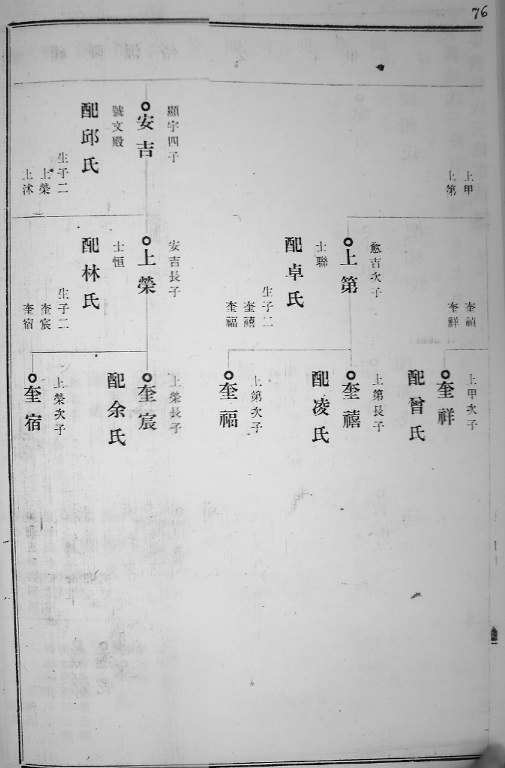 76
上甲
上第
顯宇四子
安吉
號文殿
配邱氏
生子二
上榮
上沭
奎禎
奎祥
愈吉次子
上第
士聯
配卓氏
生子二
奎禧
奎福
安吉長子
上榮
士恒
配林氏
生子二
奎宸
奎宿
上甲次子
奎祥
配曾氏
上第長子
奎禧
配凌氏
上第次子
奎福
上榮長子
奎宸
配余氏
上榮次子
奎宿